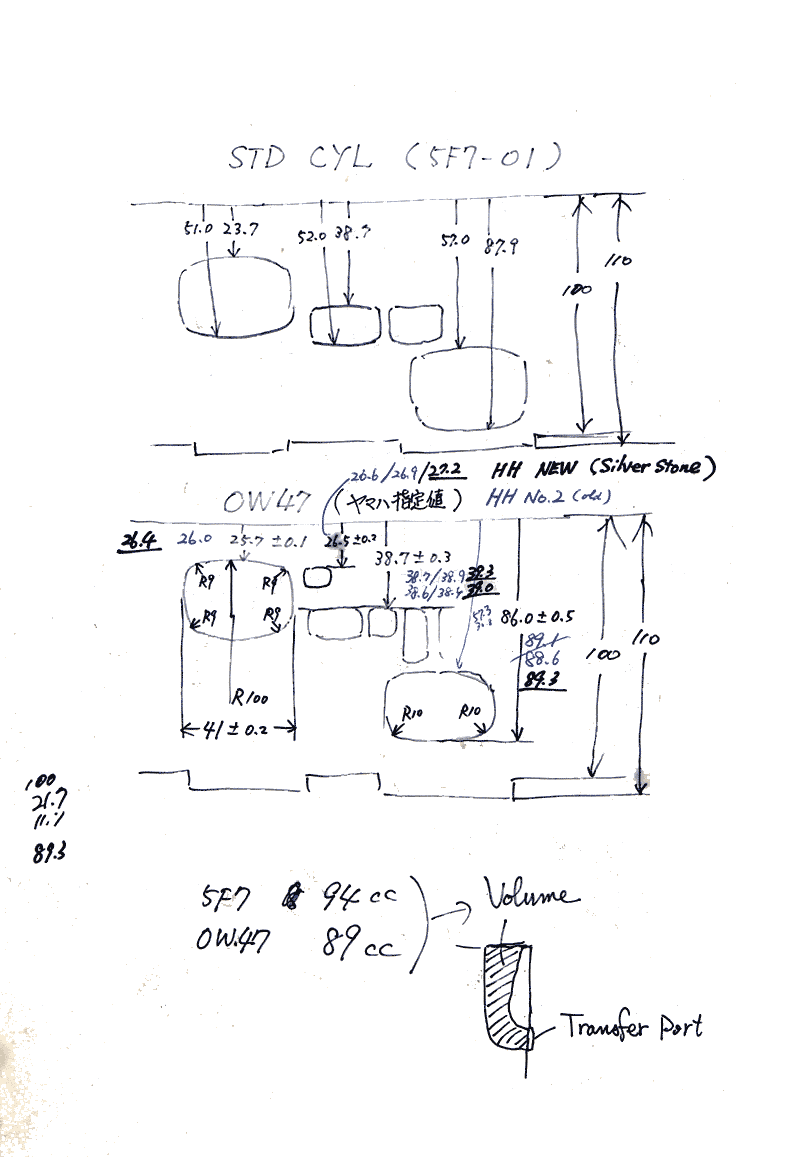 STD CYL (5F7-01)
51.0 23.7 52.0 38.7 57.0 87.9 100 110
26.6/26.9/27.2 HH NEW (Silver Stone)
OW47 (ヤマハ指定値) HH No.2 (old)
26.4 26.0 25.7±0.1 26.5±0.3
38.7±0.3
38.7/38.9 39.3
38.6/38.4 39.0
R9 R9
R9 R9
86.0±0.5
89.1
88.6
89.3
100 110
R100
R10 R10
41±0.2
100
21.7
11.7
89.3
5F7 94cc
OW47 89cc
Volume
Transfer Port